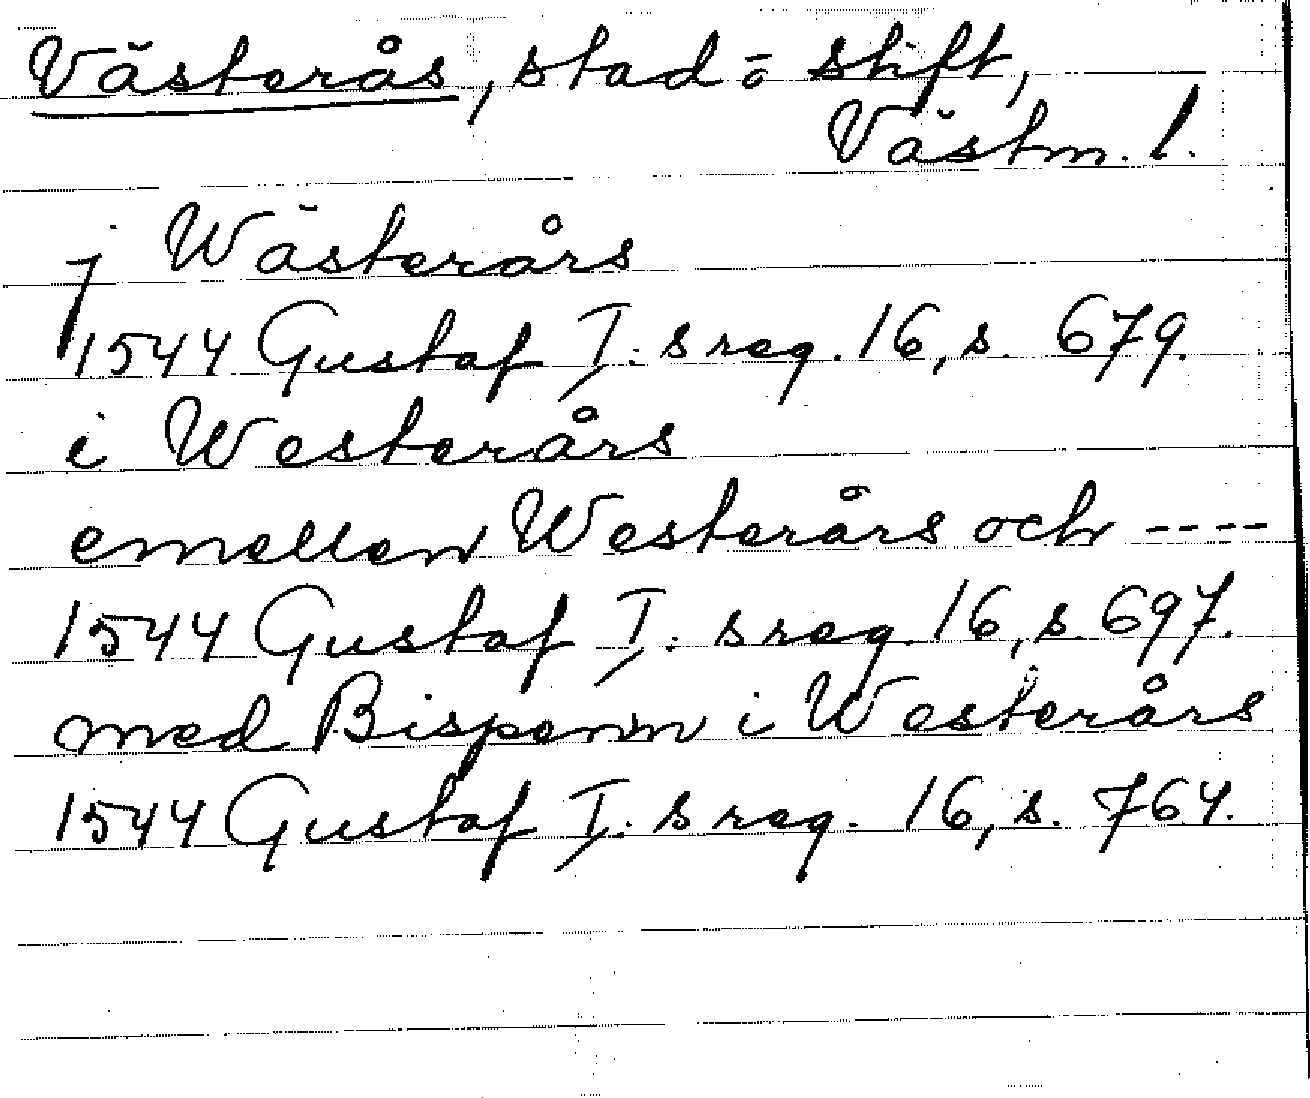 Västerås, stad o stift,
Västm. l.
j Wästerårs
1544 Gustaf I:s reg. 16, s. 679.
i Westerårs
emellen Westerårs och ----
1544 Gustaf I:s reg. 16, s. 697.
med Bispenn i Westerårs
1544 Gustaf I:s reg. 16, s. 764.